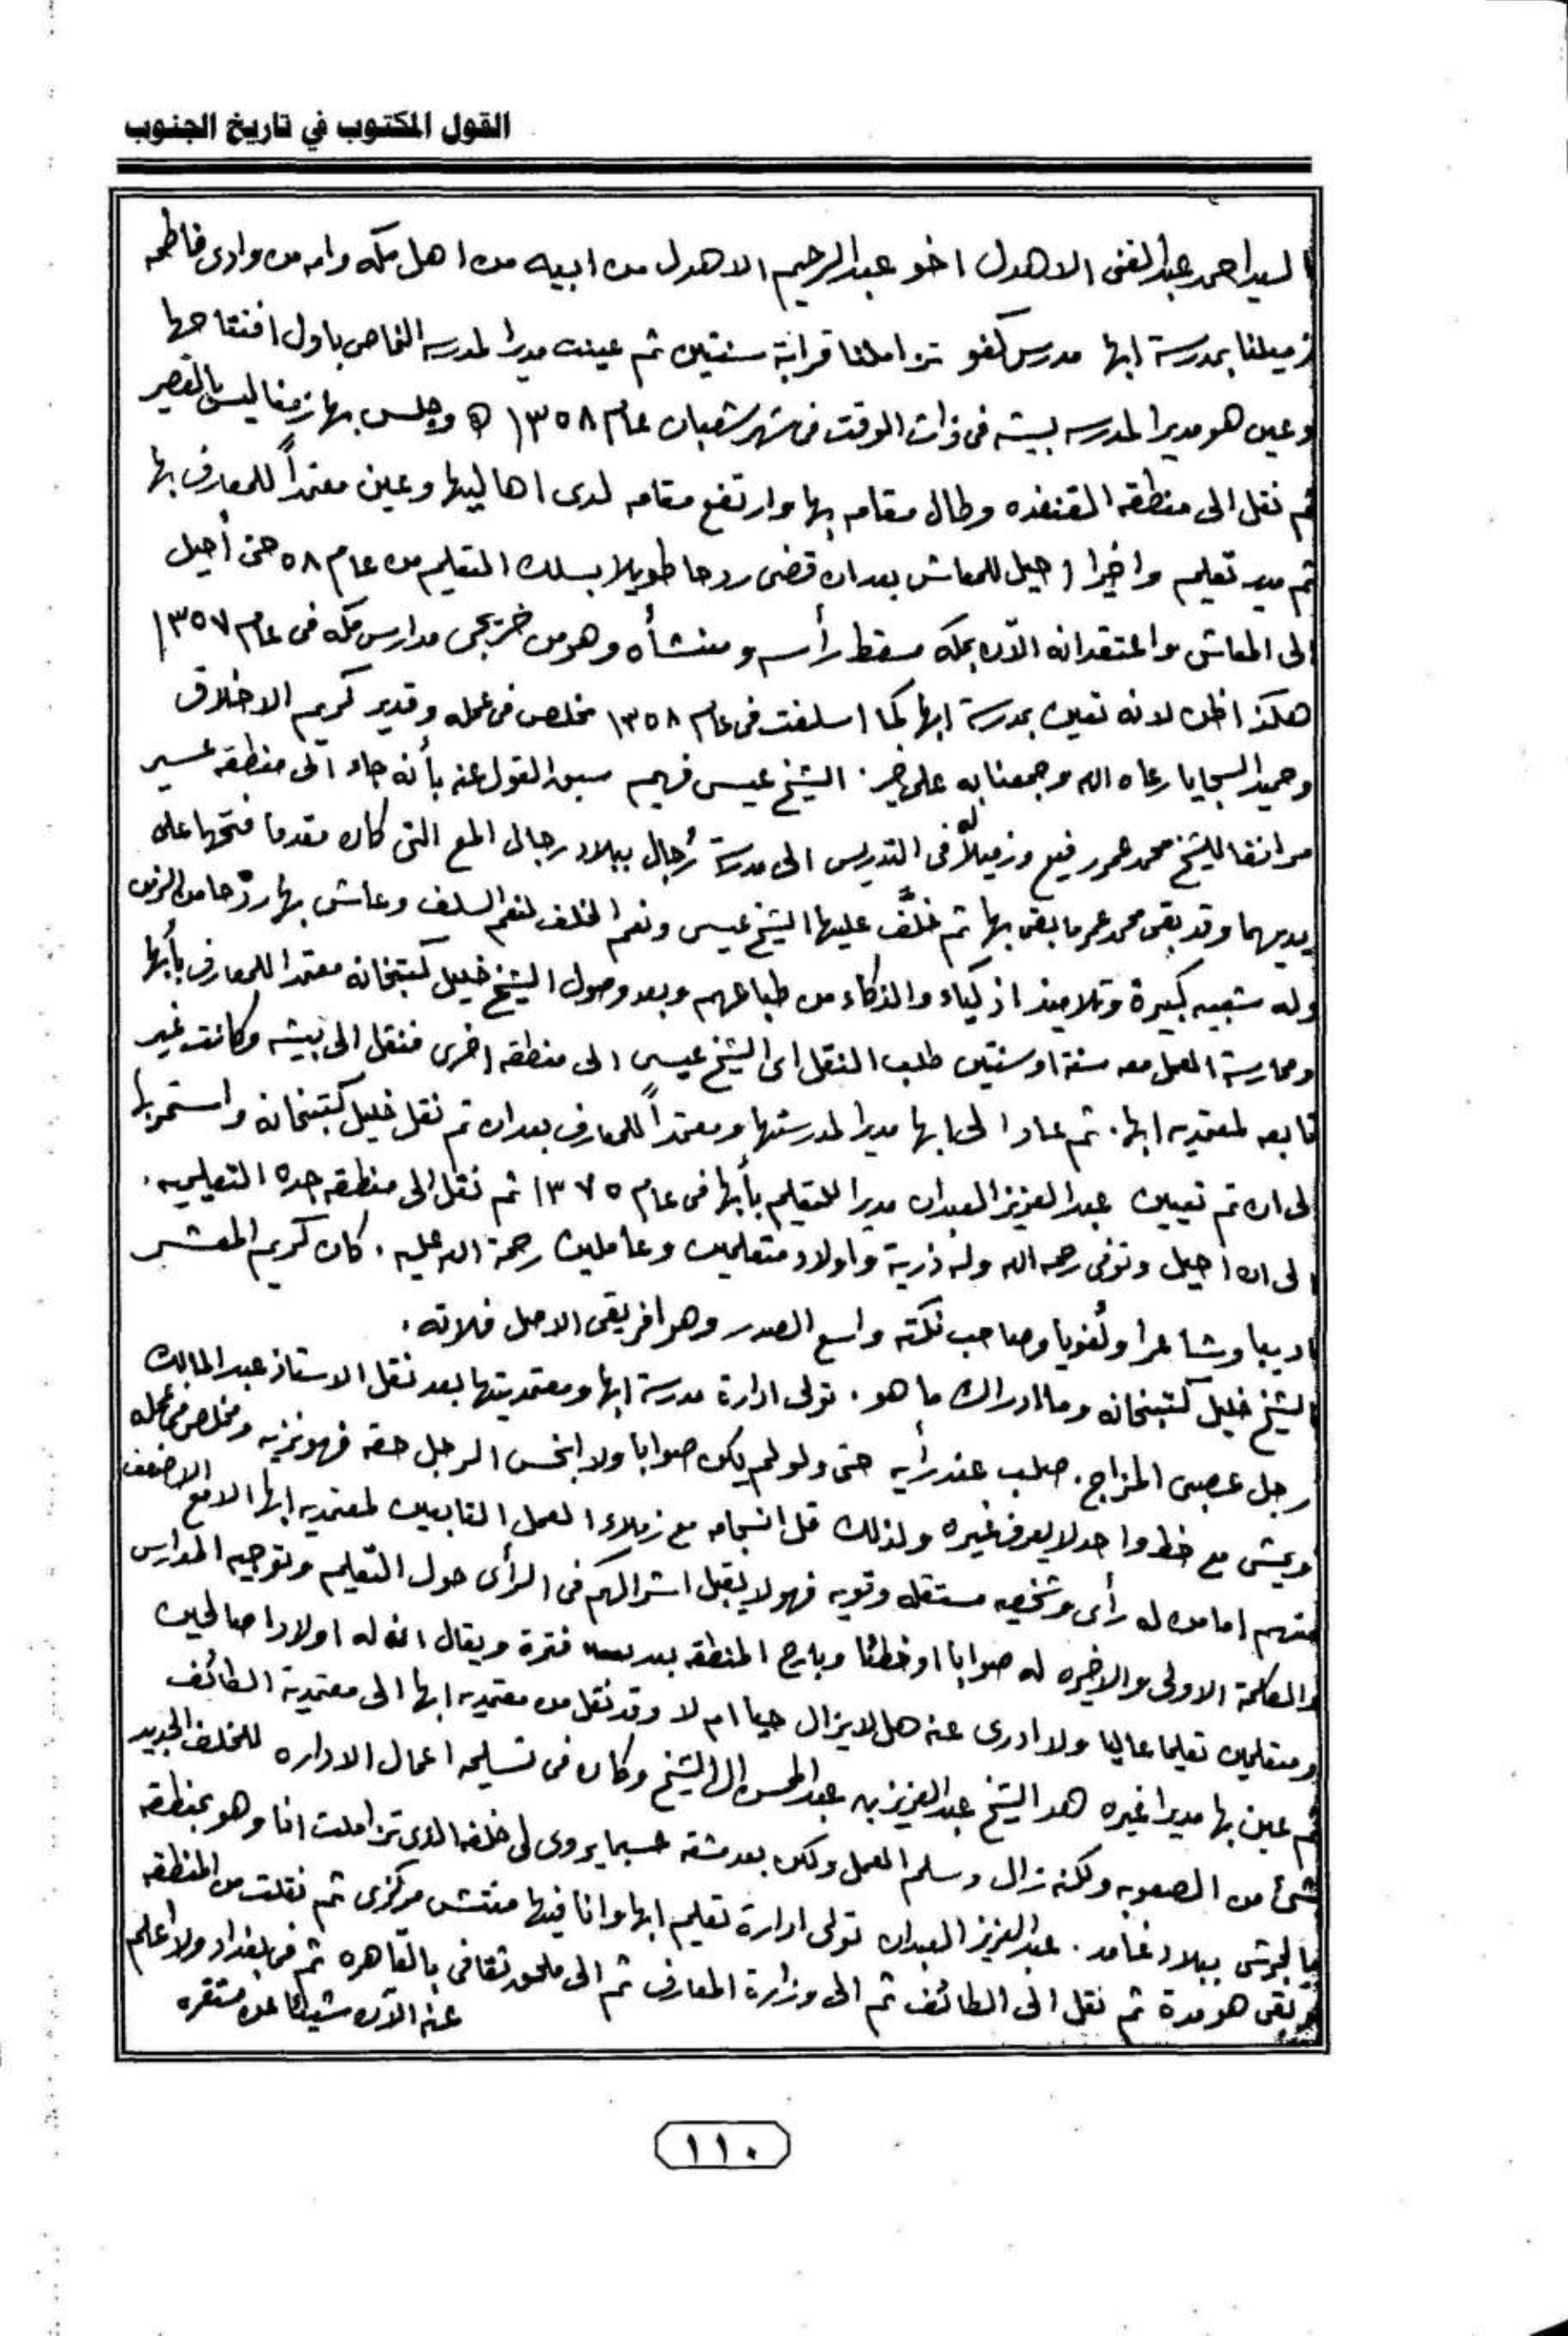 القول المكتوب في تاريخ الجنوب
السيد احمد عبدالغنى الاهدل اخو عبدالرحيم الاهدل من ابيه من اهل مكه وامه من وادى فاطمه
زميلنا بمدرسة ابها مدرس كفو تزاملنا قرابة سنتين ثم عينت مديرا لمدرسه النماص باول افتتاحها
وعين هو مديرا لمدرسه بيشه فى ذات الوقت فى شهر شعبان عام ١٣٥٨ ه وجلس بها زمنا ليس بالقصير
ثم نقل الى منطقه القنفذه وطال مقامه بها وارتفع مقامه لدى اهاليها وعين معتمداً للمعارف بها
ثم مدير تعليم واخيرا احيل للمعاش بعد ان قضى ردحا طويلا بسلك التعليم من عام ٥٨ حتى أحيل
الى المعاش واعتقد انه الآن بمكه مسقط رأسه ومنشأه وهو من خريجى مدارس مكه فى عام ١٣٥٧
هكذا اظن لانه تعين بمدرسة ابها كما اسلفت فى عام ١٣٥٨ مخلص فى عمله وقدير كريم الاخلاق
وحميد السجايا رعاه الله وجمعنا به على خير . الشيخ عيسى فهيم سبق القول عنه بأنه جاء الى منطقه عسير
مرافقا للشيخ محمد عمر رفيع وزميلاً له فى التدريس الى مدرسة رُجال ببلاد رجال المع التى كان مقدما فتحها على
يديهما وقد بقى محمد عمر ما بقى بها ثم خلَّف عليها الشيخ عيسى ونعم الخلف لنعم السلف وعاش بها ردحا من الزمن
وله شعبيه كبيرة وتلاميذ اذكياء والذكاء من طباعهم وبعد وصول الشيخ خليل كتبخانه معتمدا للمعارف بأبها
وممارسة العمل معه سنة او سنتين طلب النقل اى الشيخ عيسى الى منطقه اخرى فنقل الى بيشه وكانت غير
تابعه لمعتمديه ابها . ثم عاد الى ابها مديرا لمدرستها ومعتمداً للمعارف بعد ان تم نقل خليل كتبخانه واستمر بها
الى ان تم تعيين عبدالعزيز العبدان مديرا للتعليم بأبها فى عام ١٣٧٥ ثم نقل الى منطقه جده التعليميه .
الى ان احيل وتوفى رحمه الله وله ذرية واولاد متعلمين وعاملين رحمة الله عليه . كان كريم المعشر
اديبا وشاعرا ولُغويا وصاحب نكته واسع الصدر وهو افريقى الاصل فلاته .
الشيخ خليل كتبخانه وما ادراك ما هو . تولى ادارة مدرسة ابها ومعتمديتها بعد نقل الاستاذ عبدالمالك
رجل عصبى المزاج . صلب عند رأيه حتى ولو لم يكن صوابا ولا ابخس الرجل حقه فهو نزيه ومخلص فى عمله
ويمشى مع خط واحد لا يعرف غيره ولذلك قل انسجامه مع زملاء العمل التابعين لمعتمديه ابها الا مع الاضعف
منهم اما من له رأى وشخصيه مستقله وقويه فهو لا يقبل اشراكهم فى الرأى حول التعليم وتوجيه المدارس
والكلمة الاولى والاخيره له صوابا او خطئا وبارح المنطقه بعد فترة ويقال انه له اولادا صالحين
ومتعلمين تعليما عاليا ولا ادرى عنه هل لا يزال حيا ام لا وقد نقل من معتمديه ابها الى معتمدية الطائف
ثم عين بها مديرا غيره هو الشيخ عبدالعزيز بن عبدالمحسن ال الشيخ وكان فى تسليمه اعمال الاداره للخلف الجديد
شئ من الصعوبه ولكنه زال وسلم العمل ولكن بعد مشقه حسبما يروى لى خلفه الذى تزاملت انا وهو بمنطقه
بالجرشى ببلاد غامد . عبدالعزيز العبدان تولى ادارة تعليم ابها وانا فيها مفتش مركزى ثم نقلت من المنطقه
وبقى هو مدة ثم نقل الى الطائف ثم الى وزارة المعارف ثم الى ملحق ثقافى بالقاهره ثم فى بغداد ولا اعلم
عنه الآن شيئا عن مستقره
١١٠